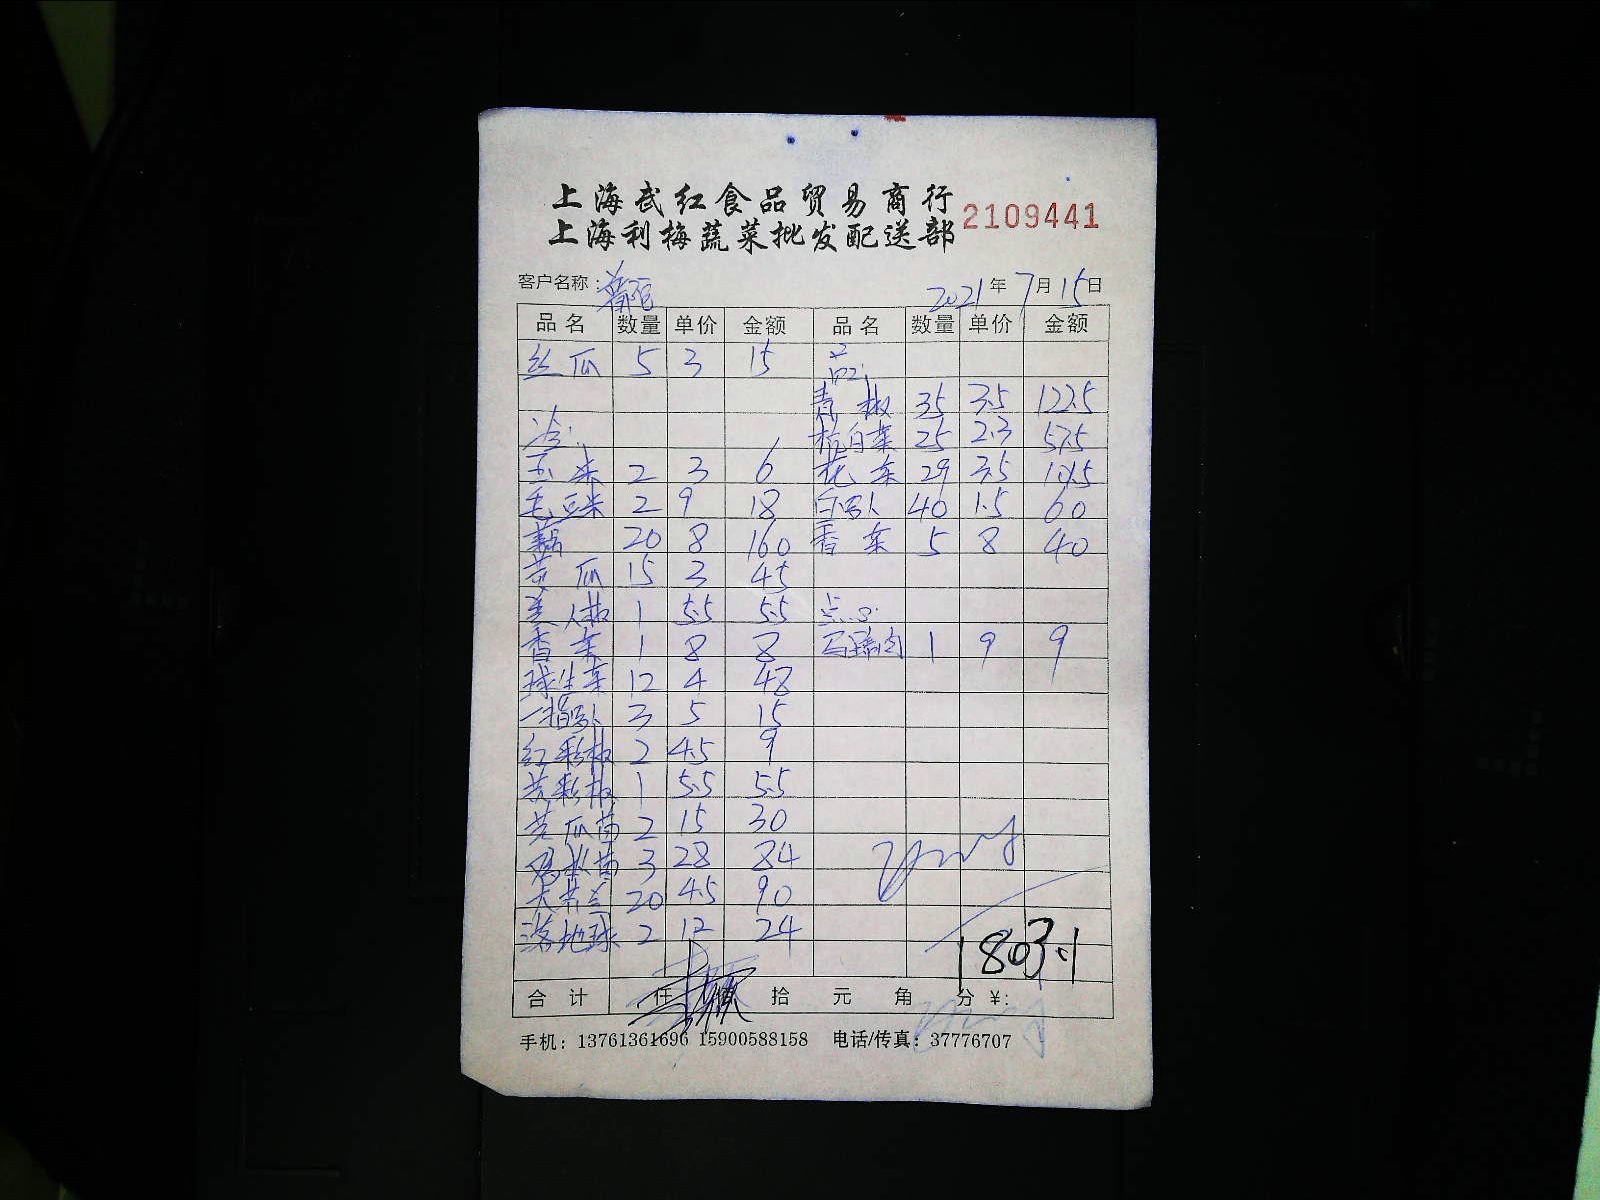 上海武红食品贸易商行
上海利梅蔬菜批发配送部 2109441
客户名称: 2021年7月15日
品名 数量 单价 金额 品名 数量 单价 金额
丝瓜 5 3 15
青椒 35 3.5 122.5
冷: 杭白菜 25 2.3 57.5
玉米 2 3 6 花菜 29 3.5 101.5
毛豆米 2 9 18 白罗卜 40 1.5 60
藕 20 8 160 香菜 5 8 40
黄瓜 15 3 45
美人椒 1 5.5 5.5 点心:
香菜 1 8 8 1 9 9
球生菜 12 4 48
一指罗卜 3 5 15
红彩椒 2 4.5 9
黄彩椒 1 5.5 5.5
黄瓜苗 2 15 30
3 28 84
20 4.5 90
落地球 2 12 24
1803.1
合计 仟 佰 拾 元 角 分 ¥:
手机: 13761361696 15900588158 电话/传真: 37776707